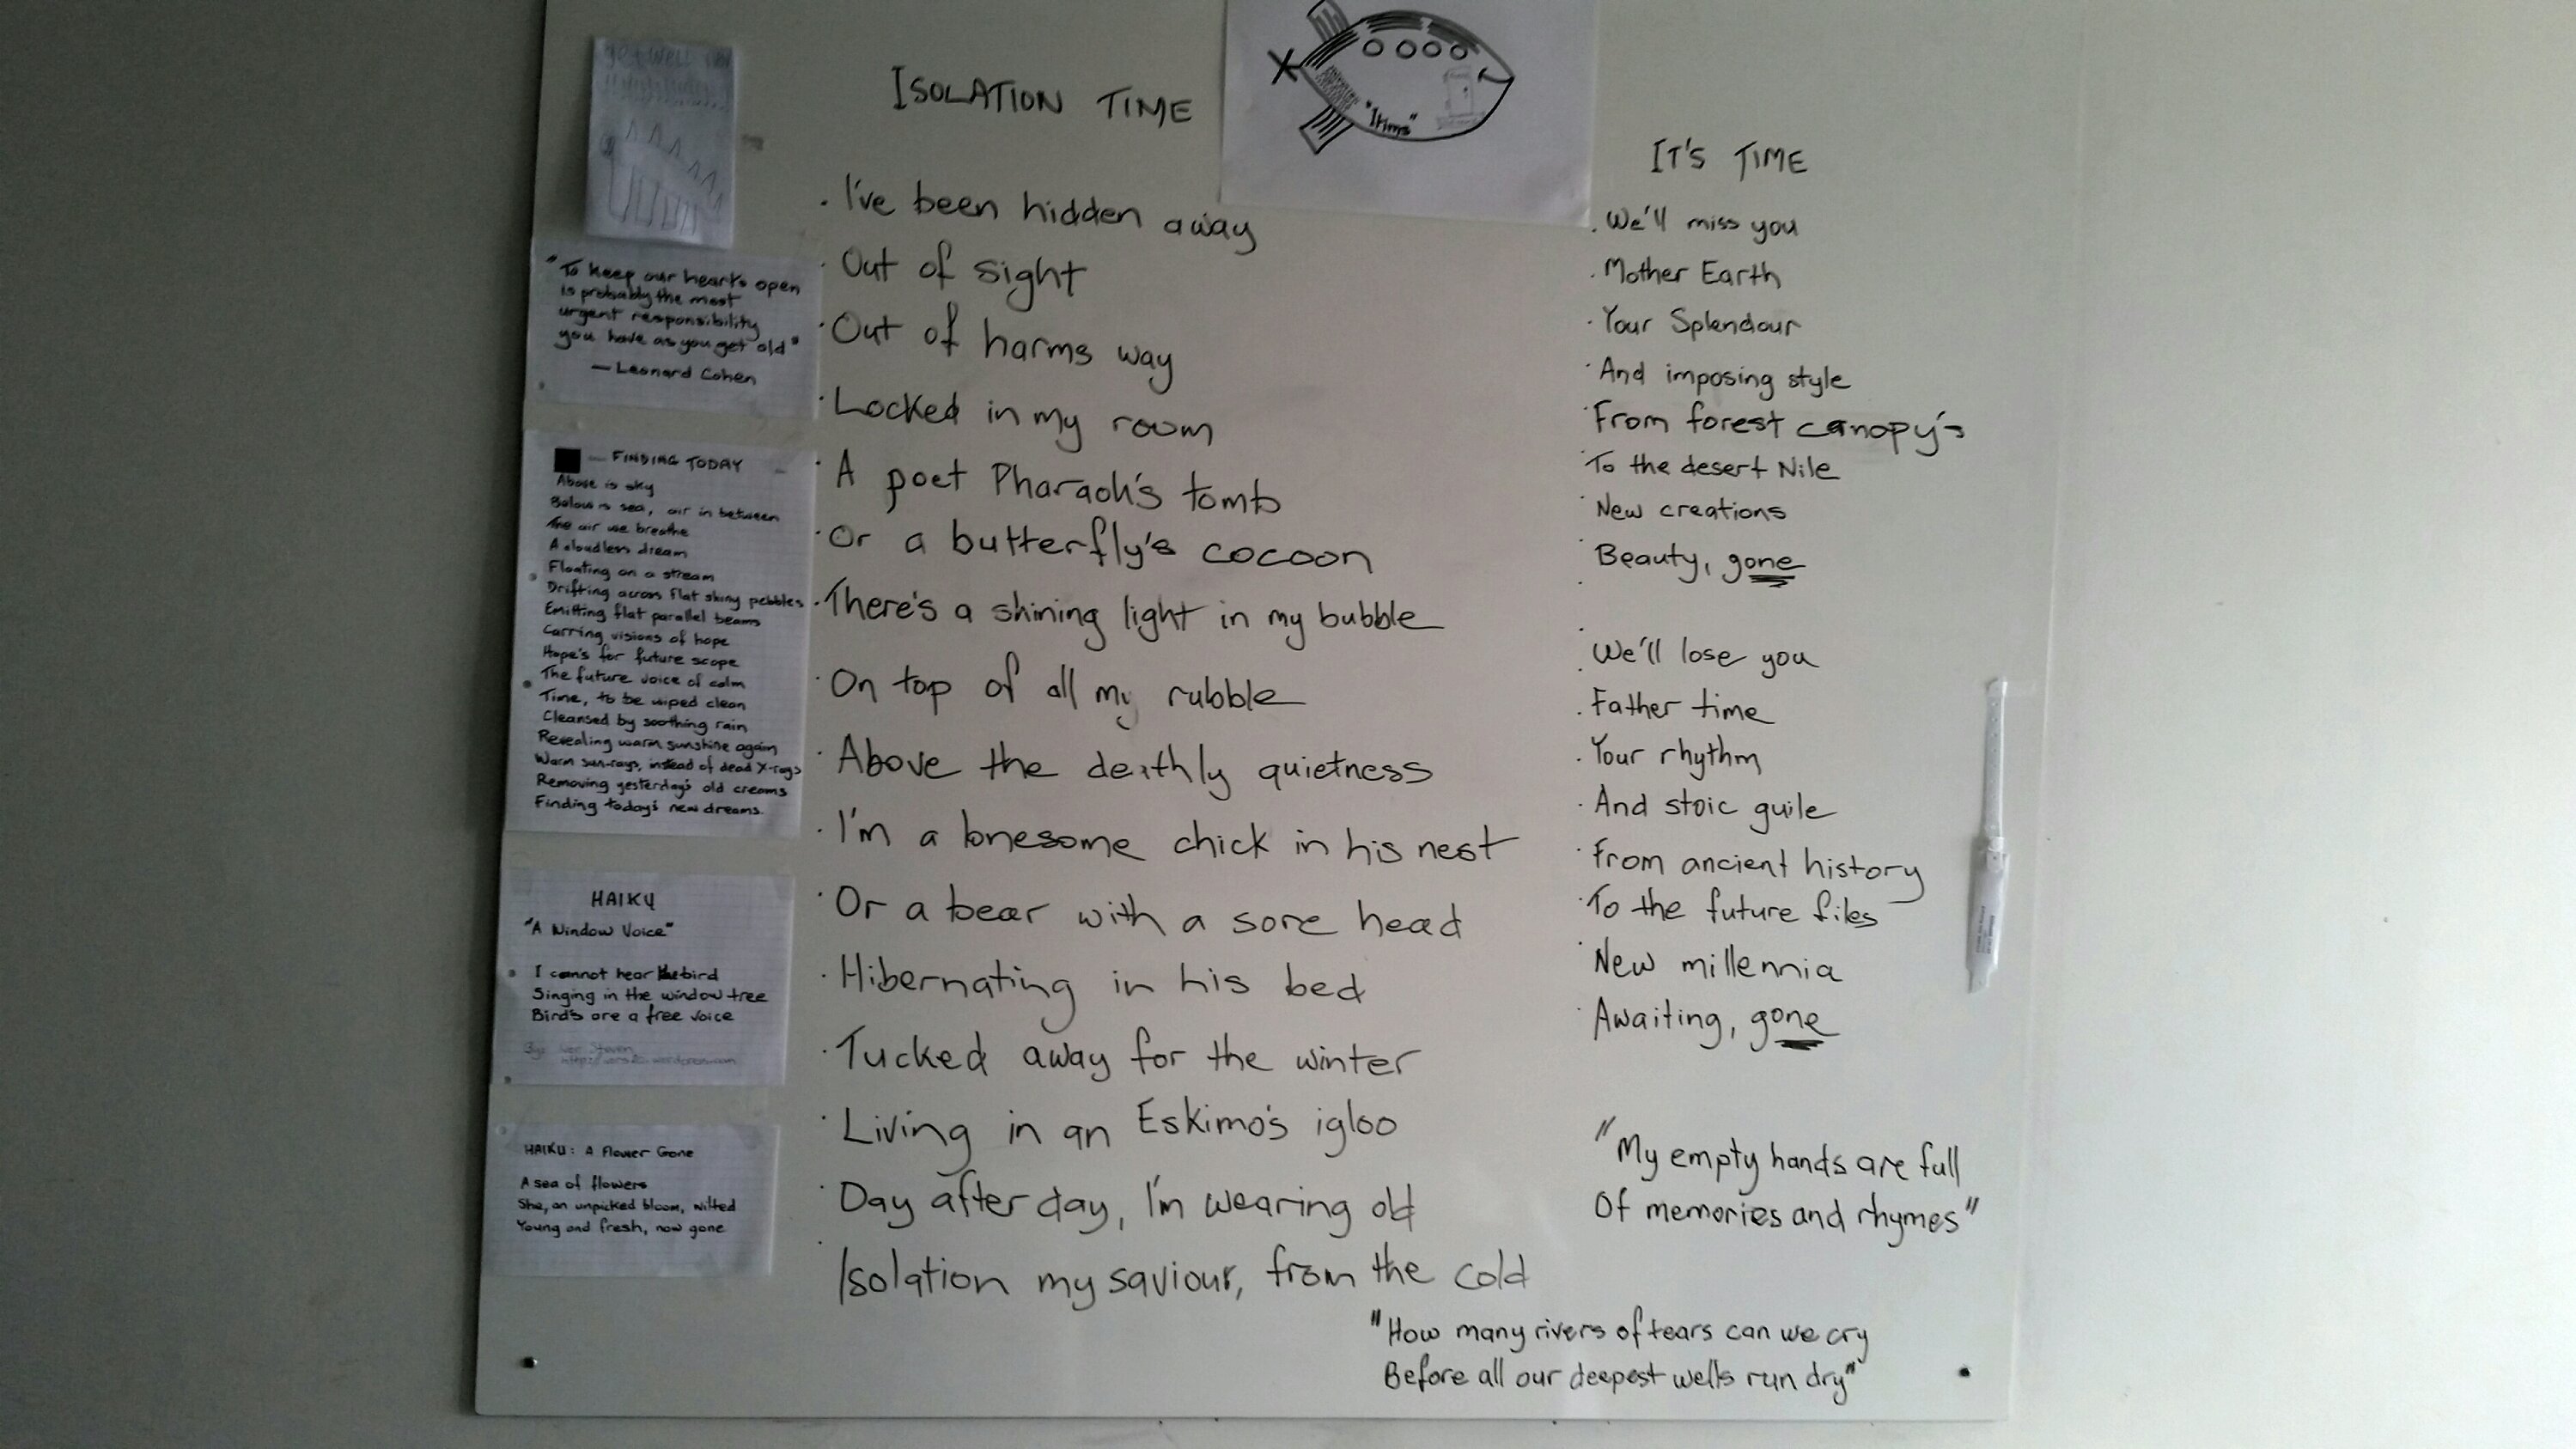 get well
"To keep our hearts open
is probably the most
urgent responsibility
you have as you get old"
— Leonard Cohen
— FINDING TODAY —
Above is sky
Below is sea, air in between
The air we breathe
A cloudless dream
Floating on a stream
Drifting across flat shiny pebbles
Emitting flat parallel beams
Carring visions of hope
Hope's for future scope
The future voice of calm
Time, to be wiped clean
Cleansed by soothing rain
Revealing warm sunshine again
Warm sun-rays, instead of dead X-rays
Removing yesterday's old creams
Finding today's new dreams.
HAIKU
"A Window Voice"
I cannot hear the bird
Singing in the window tree
Bird's are a free voice
By:
HAIKU: A Flower Gone
A sea of flowers
She, an unpicked bloom, wilted
Young and fresh, now gone
ISOLATION TIME
. I've been hidden away
. Out of sight
. Out of harms way
. Locked in my room
. A poet Pharaoh's tomb
. Or a butterfly's cocoon
. There's a shining light in my bubble
. On top of all my rubble
. Above the deathly quietness
. I'm a lonesome chick in his nest
. Or a bear with a sore head
. Hibernating in his bed
. Tucked away for the winter
. Living in an Eskimo's igloo
. Day after day, I'm wearing old
. Isolation my saviour, from the cold
"Itims"
IT'S TIME
. We'll miss you
. Mother Earth
. Your Splendour
. And imposing style
. From forest canopy's
. To the desert Nile
. New creations
. Beauty, gone
. We'll lose you
. Father time
. Your rhythm
. And stoic guile
. From ancient history
. To the future files
. New millennia
. Awaiting, gone
"My empty hands are full
Of memories and rhymes"
"How many rivers of tears can we cry
Before all our deepest wells run dry"